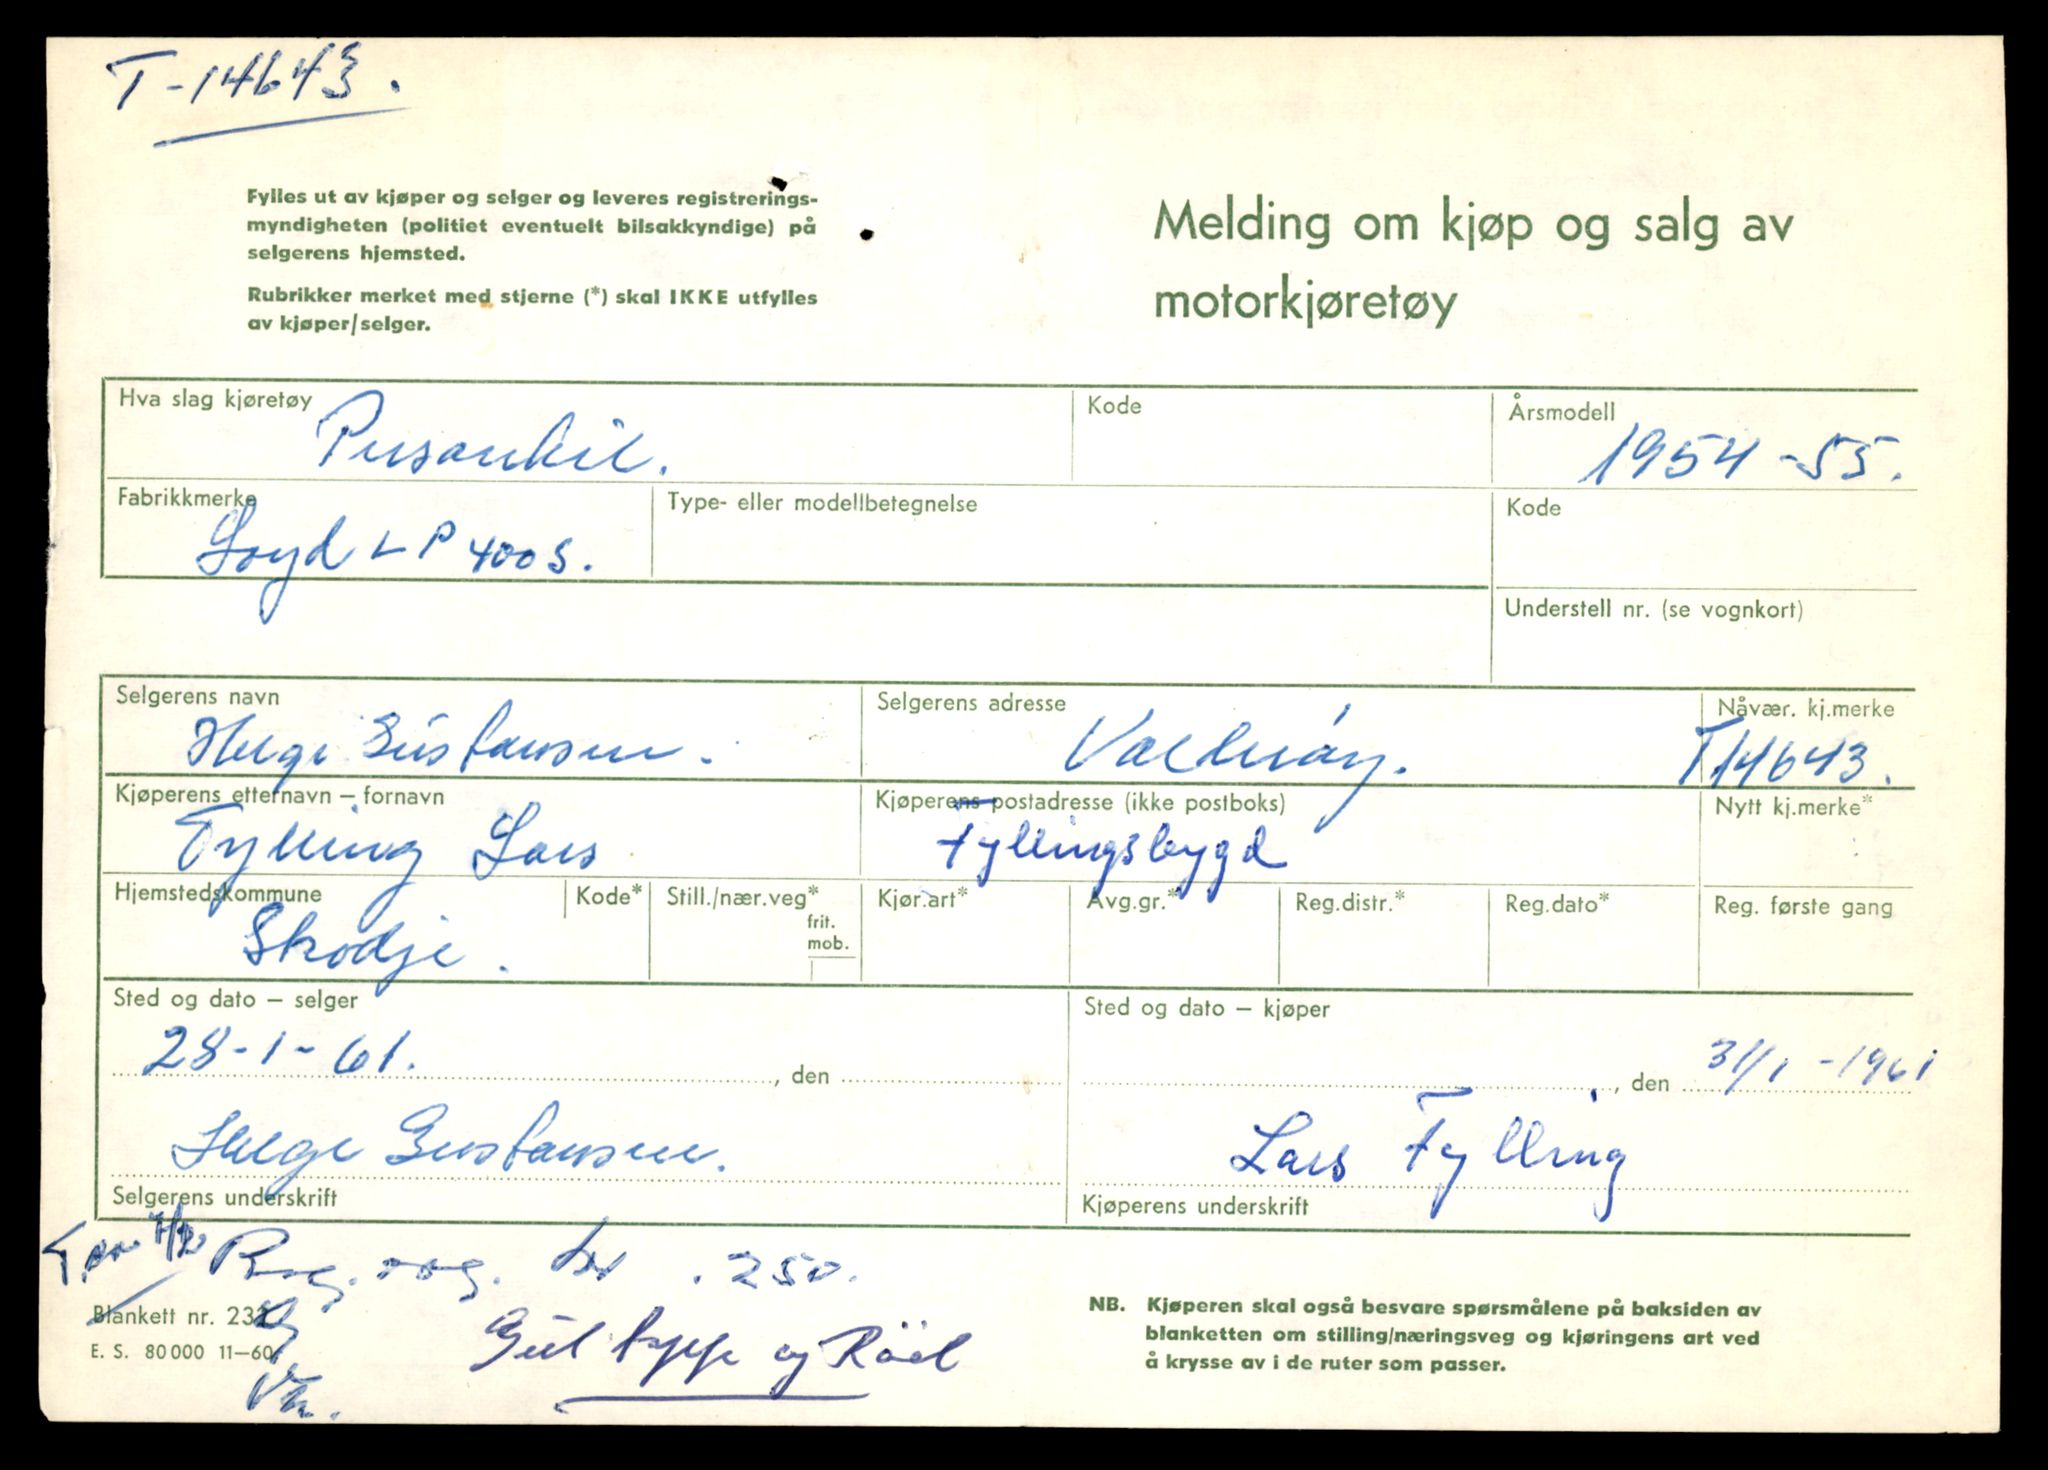 T-14643.
Fylles ut av kjøper og selger og leveres registrerings-
myndigheten (politiet eventuelt bilsakkyndige) på
selgerens hjemsted.
Rubrikker merket med stjerne (*) skal IKKE utfylles
av kjøper/selger.
Melding om kjøp og salg av
motorkjøretøy
Hva slag kjøretøy
Personbil.
Kode
Årsmodell
1954-55.
Fabrikkmerke
Loyd LP 400 S.
Type- eller modellbetegnelse
Kode
Understell nr. (se vognkort)
Selgerens navn
Helge Gustavsen.
Selgerens adresse
Valderøy.
Nåvær. kj.merke
T14643.
Kjøperens etternavn – fornavn
Fylling Lars
Kjøperens postadresse (ikke postboks)
Fyllingsbygd
Nytt kj.merke*
Hjemstedskommune
Skodje.
Kode*
Still./nær.veg*
frit.
mob.
Kjør.art*
Avg.gr.*
Reg.distr.*
Reg.dato*
Reg. første gang
Sted og dato – selger
28-1-61.
, den
Sted og dato – kjøper
, den 31/1-1961
Helge Gustavsen.
Selgerens underskrift
Lars Fylling
Kjøperens underskrift
Reg. . 250.
Blankett nr. 232
E. S. 80 000 11–60
Gul toppe og Röd
NB. Kjøperen skal også besvare spørsmålene på baksiden av
blanketten om stilling/næringsveg og kjøringens art ved
å krysse av i de ruter som passer.